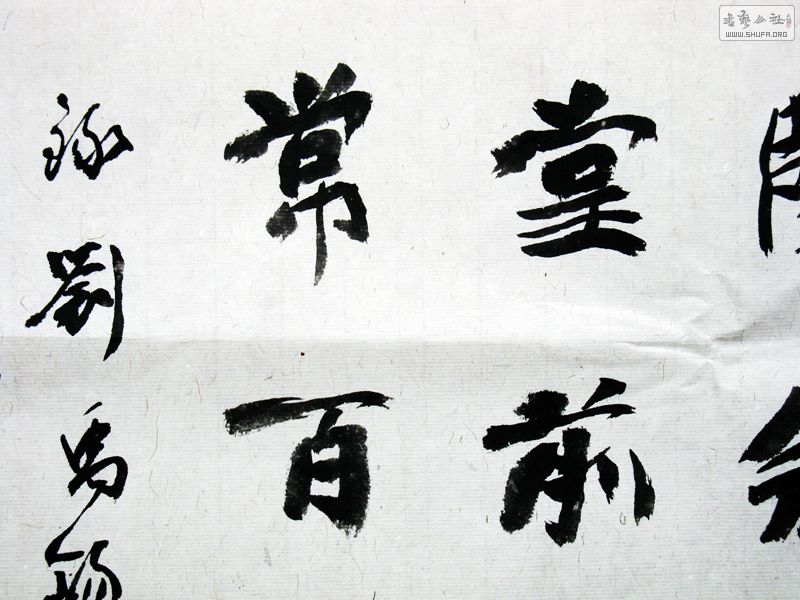 堂前
常百
錄劉禹錫
書藝公社
WWW.SHUFA.ORG